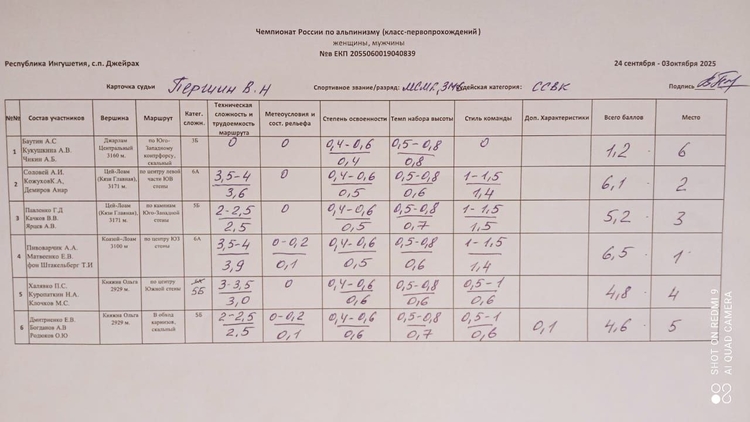 Чемпионат России по альпинизму (класс-первопрохождений )
женщины, мужчины
№в ЕКП 2055060019040839
Республика Ингушетия, с.п. Джейрах
24 сентября - 03октября 2025
Карточка судьи Першин В.Н Спортивное звание/разряд: МСМК, ЗМС Судейская категория: ССВК Подпись
№№ Состав участников Вершина Маршрут Катег. сложн. Техническая сложность и трудоемкость маршрута Метеоусловия и сост. рельефа Степень освоенности Темп набора высоты Стиль команды Доп. Характеристики Всего баллов Место
1 Баутин А.С Кукушкина А.В. Чикин А.Б. Джарлам Центральный 3160 м. по Юго-Западному контрфорсу, скальный 3Б 0 0 0,4-0,6 0,4 0,5-0,8 0,8 0 1,2 6
2 Соловей А.И. Кожухов К.А, Демиров Анар Цей-Лоам (Кязи Главная), 3171 м. по центру левой части ЮВ стены 6А 3,5-4 3,6 0 0,4-0,6 0,5 0,5-0,8 0,6 1-1,5 1,4 6,1 2
3 Павленко Г.Д Качков В.В. Яршев А.В. Цей-Лоам (Кязи Главная), 3171 м. по каминам Юго-Западной стены 5Б 2-2,5 2,5 0 0,4-0,6 0,5 0,5-0,8 0,7 1-1,5 1,5 5,2 3
4 Пивоварчик А.А. Матвеенко Е.В. фон Штакельберг Т.И Князей-Лоам 3100 м по центру ЮЗ стены 6А 3,5-4 3,9 0-0,2 0,1 0,4-0,6 0,5 0,5-0,8 0,6 1-1,5 1,4 6,5 1
5 Халявко П.С. Куропаткин Н.А. Клочков М.С. Княжна Ольга 2929 м. по центру Южной стены 5Б 3-3,5 3,0 0 0,4-0,6 0,6 0,5-0,8 0,6 0,5-1 0,6 4,8 4
6 Дмитриенко Е.В. Богданов А.В Родиков О.Ю Княжна Ольга 2929 м. В обход карнизов, скальный 5Б 2-2,5 2,5 0-0,2 0,1 0,4-0,6 0,6 0,5-0,8 0,7 0,5-1 0,6 0,1 4,6 5
SHOT ON REDMI 9
AI QUAD CAMERA